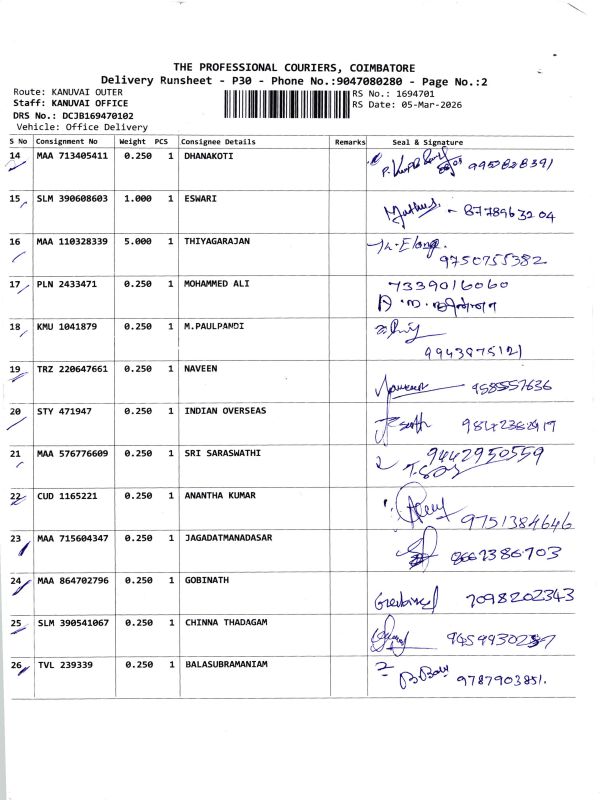 THE PROFESSIONAL COURIERS, COIMBATORE
Delivery Runsheet - P30 - Phone No.:9047080280 - Page No.:2
Route: KANUVAI OUTER
Staff: KANUVAI OFFICE
DRS No.: DCJB169470102
Vehicle: Office Delivery
RS No.: 1694701
RS Date: 05-Mar-2026
S No Consignment No Weight PCS Consignee Details Remarks Seal & Signature
14 MAA 713405411 0.250 1 DHANAKOTI
15 SLM 390608603 1.000 1 ESWARI 8778963204
16 MAA 110328339 5.000 1 THIYAGARAJAN
9750755382
17 PLN 2433471 0.250 1 MOHAMMED ALI 7339016060
18 KMU 1041879 0.250 1 M.PAULPANDI
9943875121
19 TRZ 220647661 0.250 1 NAVEEN
20 STY 471947 0.250 1 INDIAN OVERSEAS
21 MAA 576776609 0.250 1 SRI SARASWATHI 9442950559
22 CUD 1165221 0.250 1 ANANTHA KUMAR
9751384646
23 MAA 715604347 0.250 1 JAGADATMANADASAR
24 MAA 864702796 0.250 1 GOBINATH
7098202343
25 SLM 390541067 0.250 1 CHINNA THADAGAM
26 TVL 239339 0.250 1 BALASUBRAMANIAM
9787903851.